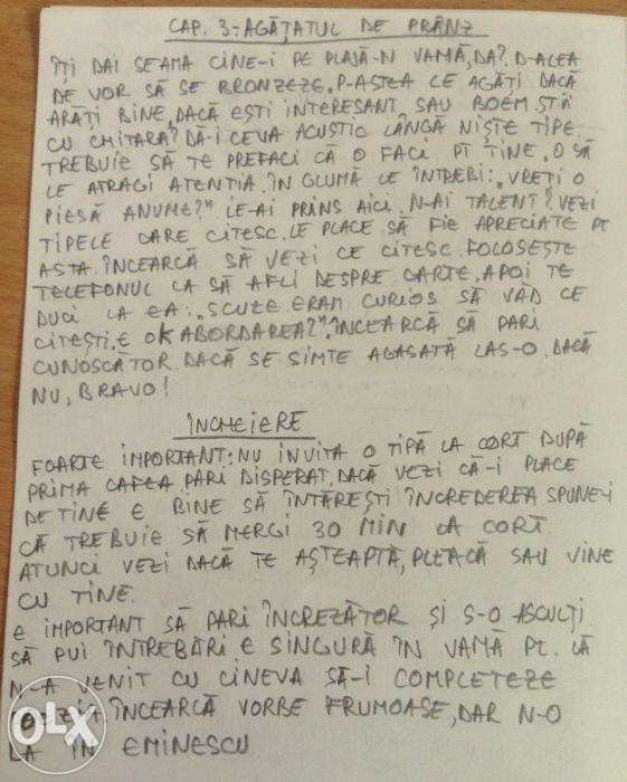 CAP. 3-AGĂȚATUL DE PRÂNZ
ÎȚI DAI SEAMA CINE-I PE PLAJĂ-N VAMĂ, DA? D-ALEA
DE VOR SĂ SE BRONZEZE. P-ASTEA LE AGĂȚI DACĂ
ARĂȚI BINE, DACĂ EȘTI INTERESANT, SAU BOEM. STAI
CU CHITARA? DĂ-I CEVA ACUSTIC LÂNGĂ NIȘTE TIPE.
TREBUIE SĂ TE PREFACI CĂ O FACI PT TINE. O SĂ
LE ATRAGI ATENTIA. ÎN GLUMĂ LE ÎNTREBI: „VREȚI O
PIESĂ ANUME?" LE-AI PRINS AICI. N-AI TALENT? VEZI
TIPELE CARE CITESC. LE PLACE SĂ FIE APRECIATE PT
ASTA. ÎNCEARCĂ SĂ VEZI CE CITESC. FOLOSEȘTE
TELEFONUL CA SĂ AFLI DESPRE CARTE, APOI TE
DUCI LA EA: „SCUZE ERAM CURIOS SĂ VĂD CE
CITEȘTI. E OK ABORDAREA?". ÎNCEARCĂ SĂ PARI
CUNOSCĂTOR. DACĂ SE SIMTE AGASATĂ LAS-O. DACĂ
NU, BRAVO!
ÎNCHEIERE
FOARTE IMPORTANT: NU INVITA O TIPĂ LA CORT DUPĂ
PRIMA CAFEA PARI DISPERAT, DACĂ VEZI CĂ-I PLACE
DE TINE E BINE SĂ ÎNTĂREȘTI ÎNCREDEREA SPUNE-I
CĂ TREBUIE SĂ MERGI 30 MIN LA CORT.
ATUNCI VEZI DACĂ TE AȘTEAPTĂ, PLEACĂ SAU VINE
CU TINE.
E IMPORTANT SĂ PARI ÎNCREZĂTOR ȘI S-O ASCULȚI.
SĂ PUI ÎNTREBĂRI E SINGURĂ ÎN VAMĂ PT. CĂ
N-A VENIT CU CINEVA SĂ-I COMPLETEZE
POEZIA. ÎNCEARCĂ VORBE FRUMOASE, DAR N-O
DA ÎN EMINESCU
OLX